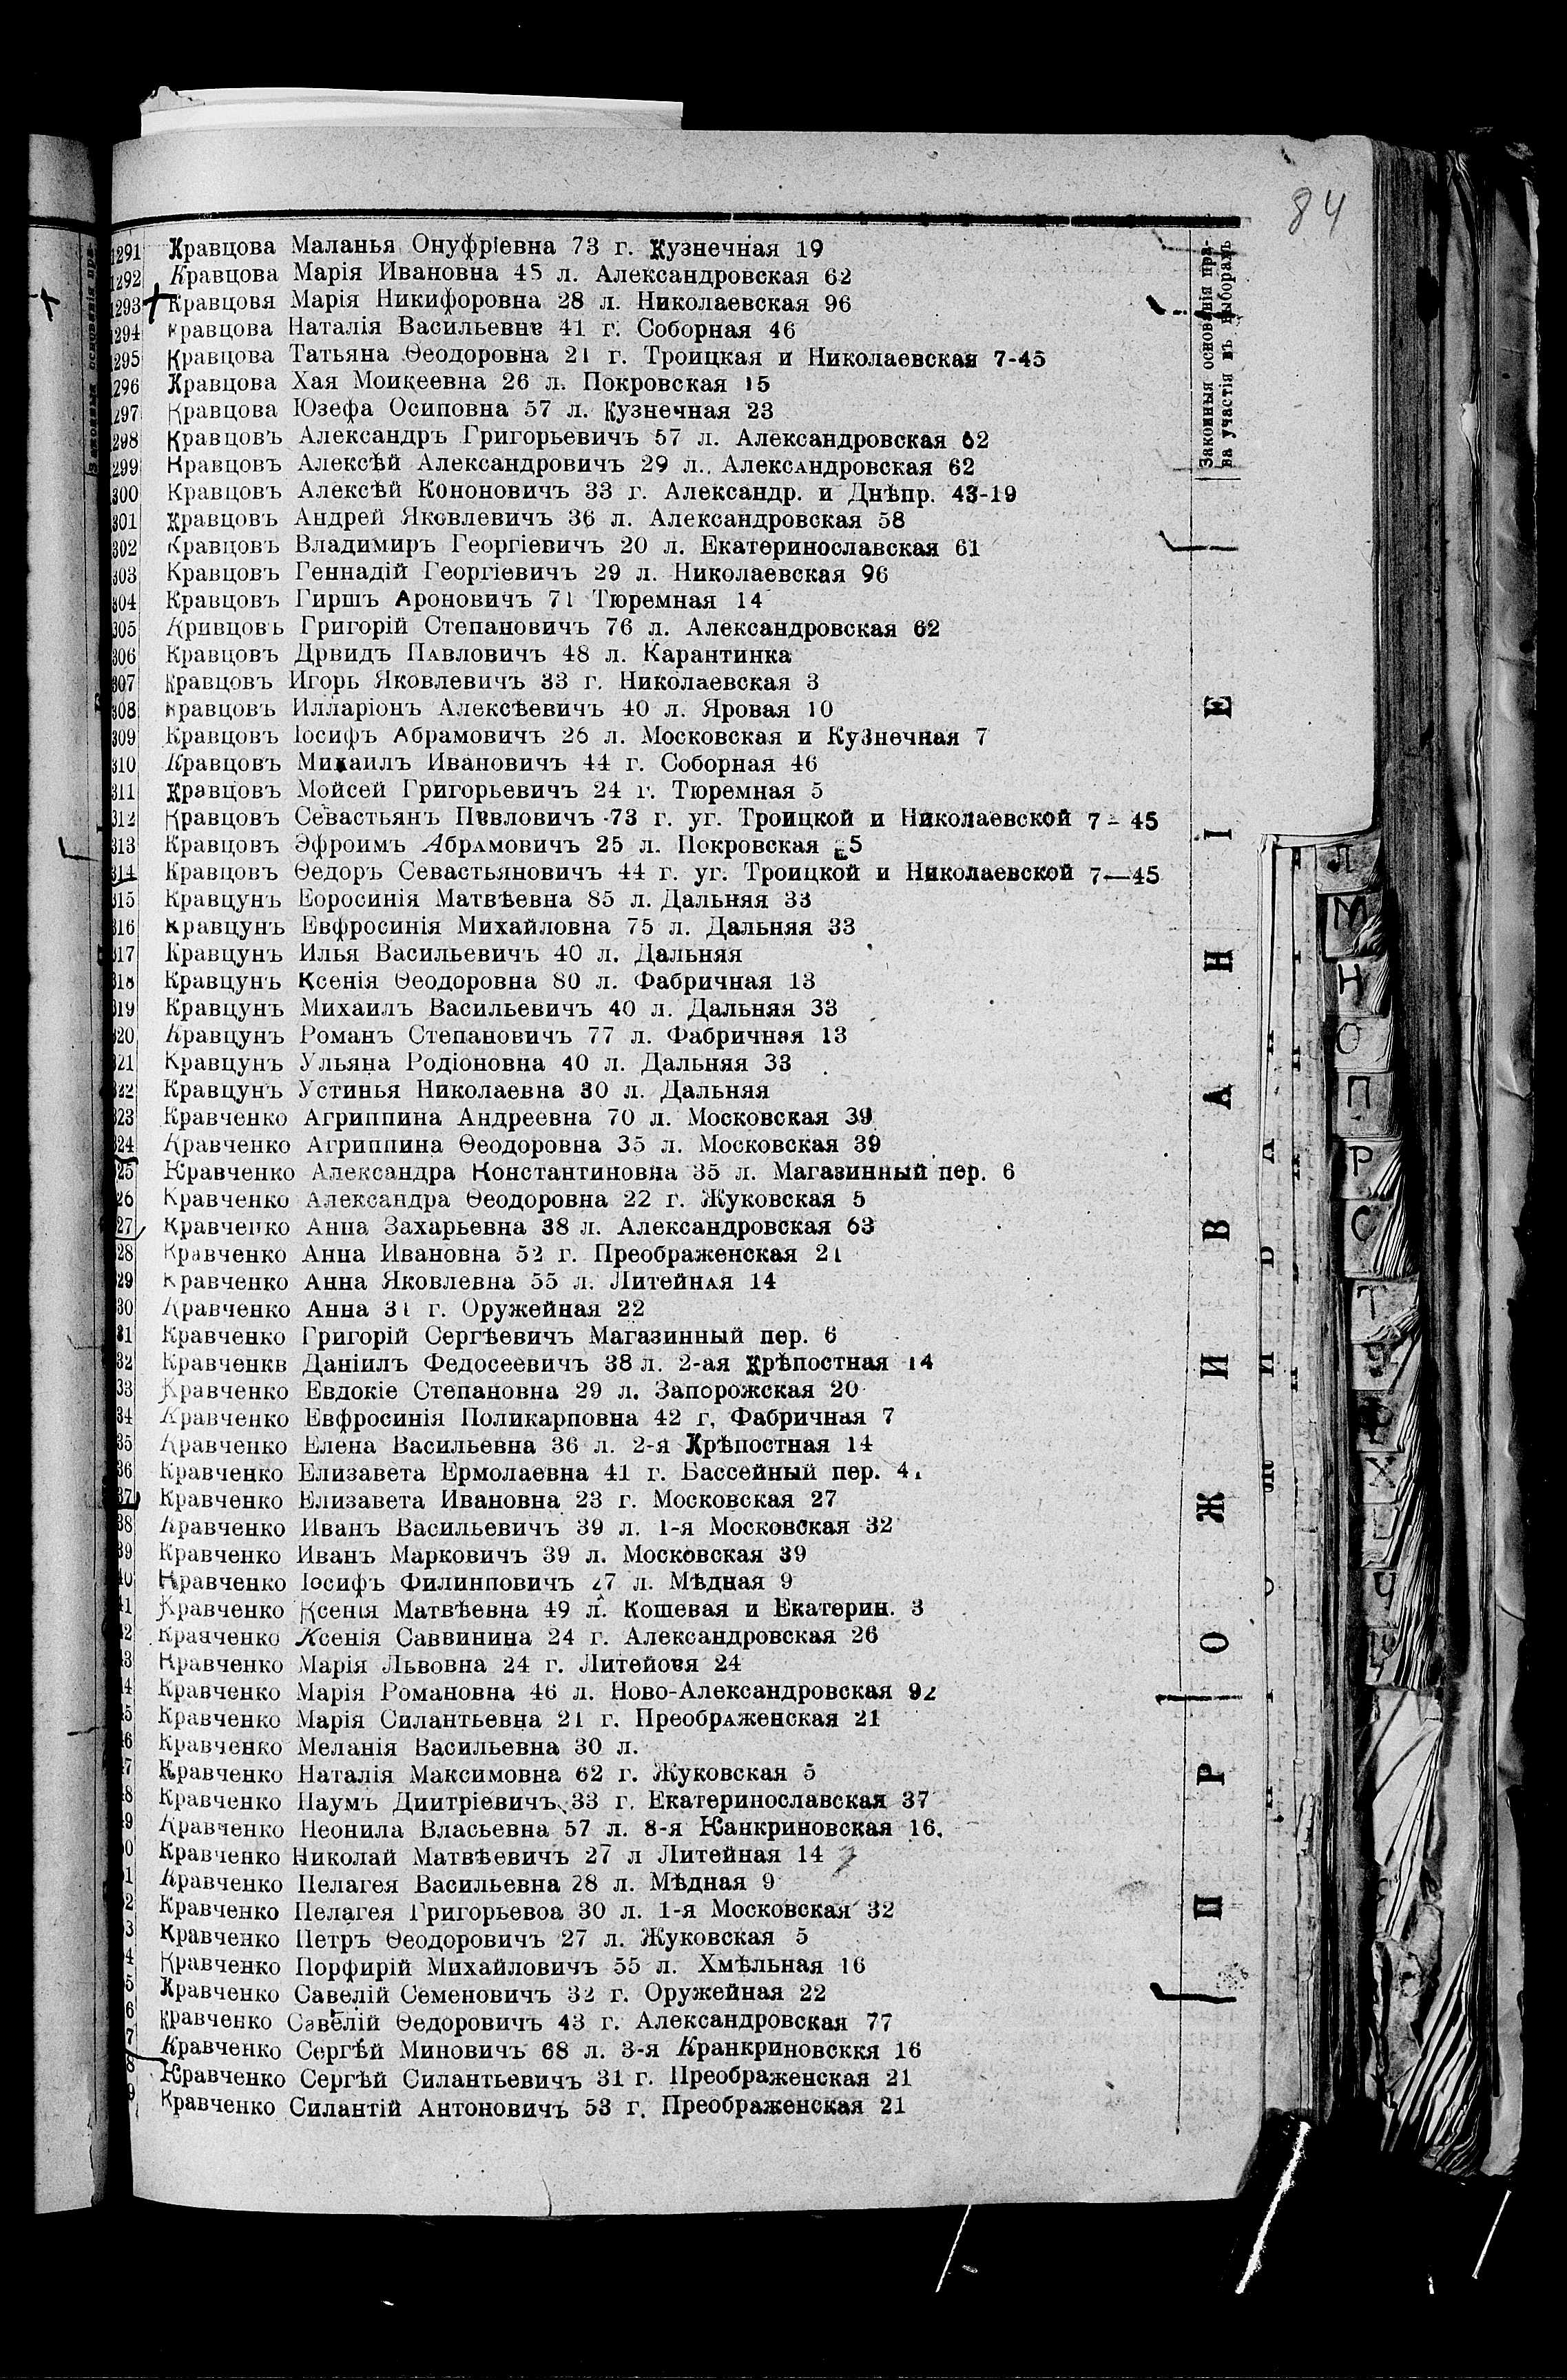 84
Законныя основанія пра-
ва участія въ выборахъ
1291 Кравцова Маланья Онуфріевна 73 г. Кузнечная 19
1292 Кравцова Марія Ивановна 45 л. Александровская 62
1293 Кравцовя Марія Никифоровна 28 л. Николаевская 96
1294 Кравцова Наталія Васильевне 41 г. Соборная 46
1295 Кравцова Татьяна Ѳеодоровна 21 г. Троицкая и Николаевская 7-45
1296 Кравцова Хая Моисеевна 26 л. Покровская 15
1297 Кравцова Юзефа Осиповна 57 л. Кузнечная 23
1298 Кравцовъ Александръ Григорьевичъ 57 л. Александровская 62
1299 Кравцовъ Алексѣй Александровичъ 29 л. Александровская 62
300 Кравцовъ Алексѣй Кононовичъ 33 г. Александр. и Днѣпр. 43-19
301 Кравцовъ Андрей Яковлевичъ 36 л. Александровская 58
302 Кравцовъ Владимиръ Георгіевичъ 20 л. Екатеринославская 61
303 Кравцовъ Геннадій Георгіевичъ 29 л. Николаевская 96
304 Кравцовъ Гиршъ Ароновичъ 71 Тюремная 14
305 Кривцовъ Григорій Степановичъ 76 л. Александровская 62
306 Кравцовъ Дрвидъ Павловичъ 48 л. Карантинка
307 Кравцовъ Игорь Яковлевичъ 33 г. Николаевская 3
308 Кравцовъ Илларіонъ Алексѣевичъ 40 л. Яровая 10
309 Кравцовъ Іосифъ Абрамовичъ 26 л. Московская и КуЗнечная 7
310 Кравцовъ Михаилъ Ивановичъ 44 г. Соборная 46
311 Кравцовъ Мойсей Григорьевичъ 24 г. Тюремная 5
312 Кравцовъ Севастьянъ Певловичъ 73 г. уг. Троицкой и Николаевской 7-45
313 Кравцовъ Эфроимъ Абрамовичъ 25 л. Покровская 5
314 Кравцовъ Ѳедоръ Севастьяновичъ 44 г. уг. Троицкой и Николаевской 7—45
315 Кравцунъ Еоросинія Матвѣевна 85 л. Дальняя 33
316 Кравцунъ Евфросинія Михайловна 75 л. Дальняя 33
317 Кравцунъ Илья Васильевичъ 40 л. Дальняя
318 Кравцунъ Ксенія Ѳеодоровна 80 л. Фабричная 13
319 Кравцунъ Михаилъ Васильевичъ 40 л. Дальняя 33
320 Кравцунъ Романъ Степановичъ 77 л. Фабричная 13
321 Кравцунъ Ульяна Родіоновна 40 л. Дальняя 33
322 Кравцунъ Устинья Николаевна 30 л. Дальняя
323 Кравченко Агриппина Андреевна 70 л. Московская 39
324 Кравченко Агриппина Ѳеодоровна 35 л. Московская 39
25 Кравченко Александра Константиновна 35 л. Магазинный пер. 6
26 Кравченко Александра Ѳеодоровна 22 г. Жуковская 5
27 Кравченко Анна Захарьевна 38 л. Александровская 63
28 Кравченко Анна Ивановна 52 г. Преображенская 21
29 Кравченко Анна Яковлевна 55 л. Литейная 14
30 Кравченко Анна 31 г. Оружейная 22
31 Кравченко Григорій Сергѣевичъ Магазинный пер. 6
32 Кравченкв Даніилъ Федосеевичъ 38 л. 2-ая Крѣпостная 14
33 Кравченко Евдокіе Степановна 29 л. Запорожская 20
34 Кравченко Евфросинія Поликарповна 42 г. Фабричная 7
35 Кравченко Елена Васильевна 36 л. 2-я Крѣпостная 14
36 Кравченко Елизавета Ермолаевна 41 г. Бассейный пер. 4
37 Кравченко Елизавета Ивановна 23 г. Московская 27
38 Кравченко Иванъ Васильевичъ 39 л. 1-я Московская 32
39 Кравченко Иванъ Марковичъ 39 л. Московская 39
40 Кравченко Іосифъ Филинповичъ 27 л. Мѣдная 9
41 Кравченко Ксенія Матвѣевна 49 л. Кошевая и Екатерин. 3
42 Краяченко Ксенія Саввинина 24 г. Александровская 26
43 Кравченко Марія Львовна 24 г. Литейовя 24
44 Кравченко Марія Романовна 46 л. Ново-Александровская 92
45 Кравченко Марія Силантьевна 21 г. Преображенская 21
46 Кравченко Меланія Васильевна 30 л.
47 Кравченко Наталія Максимовна 62 г. Жуковская 5
8 Кравченко Наумъ Диитріевичъ 33 г. Екатеринославская 37
9 Кравченко Неонила Власьевна 57 л. 8-я Канкриновская 16.
0 Кравченко Николай Матвѣевичъ 27 л Литейная 14
1 Кравченко Пелагея Васильевна 28 л. Мѣдная 9
2 Кравченко Пелагея Григорьевоа 30 л. 1-я Московская 32
3 Кравченко Петръ Ѳеодоровичъ 27 л. Жуковская 5
4 Кравченко Порфирій Михайловичъ 55 л. Хмѣльная 16
5 Кравченко Савелій Семеновичъ 32 г. Оружейная 22
6 Кравченко Савелій Ѳедоровичъ 43 г. Александровская 77
7 Кравченко Сергѣй Миновичъ 68 л. 3-я Кранкриновсккя 16
8 Кравченко Сергѣй Силантьевичъ 31 г. Преображенская 21
9 Кравченко Силантій Антоновичъ 53 г. Преображенская 21
ПРОЖИВАНІЕ
Л
М
Н
О
П
Р
С
Т
У
Ф
Х
Ч